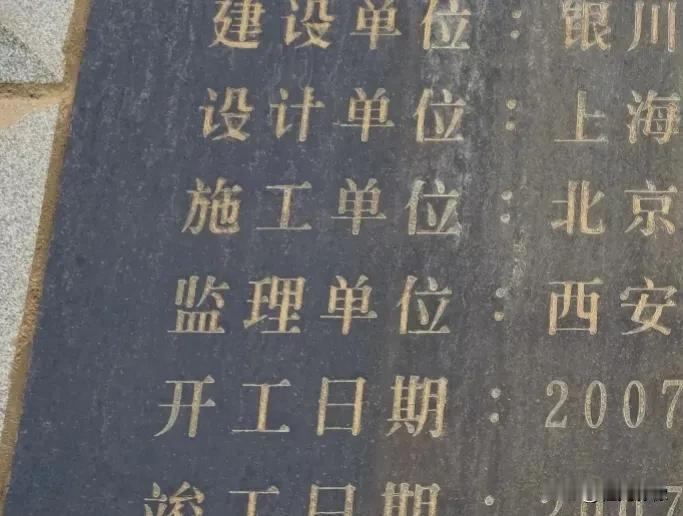 建设单位：银川
设计单位：上海
施工单位：北京
监理单位：西安
开工日期：2007
竣工日期：2007